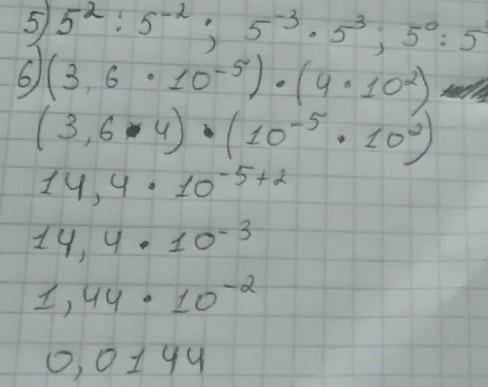 5) 5² : 5⁻² ; 5⁻³ · 5³ ; 5⁰ : 5
6) (3,6 · 10⁻⁵) · (4 · 10²)
(3,6 · 4) · (10⁻⁵ · 10²)
14,4 · 10⁻⁵⁺²
14,4 · 10⁻³
1,44 · 10⁻²
0,0144